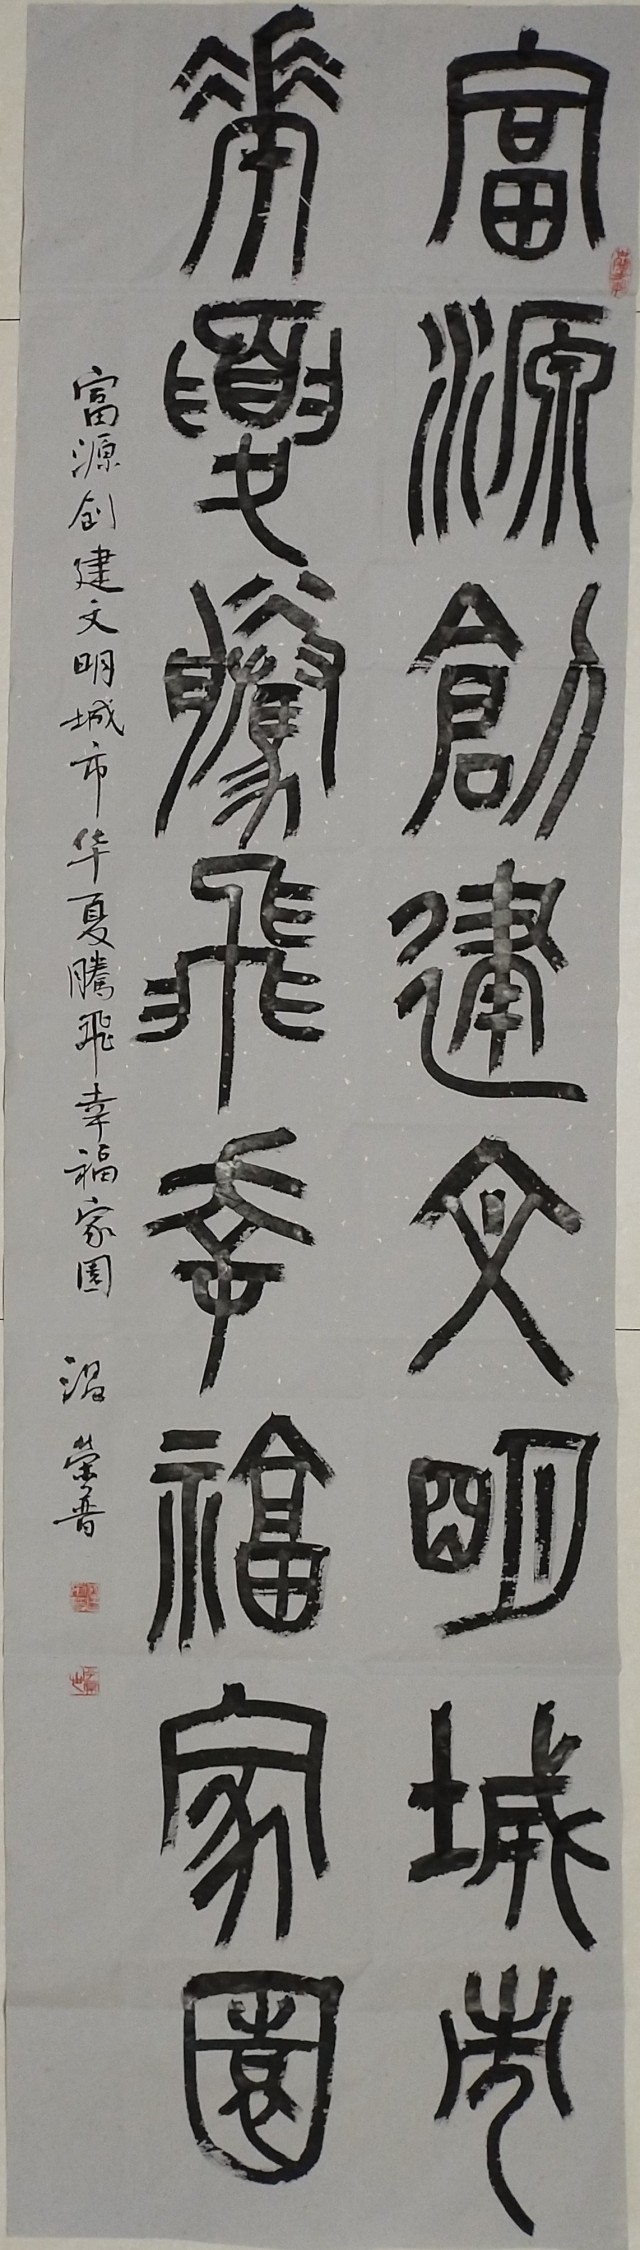 富源創建文明城市
華夏騰飛幸福家園
富源创建文明城市华夏腾飛幸福家園 温荣普